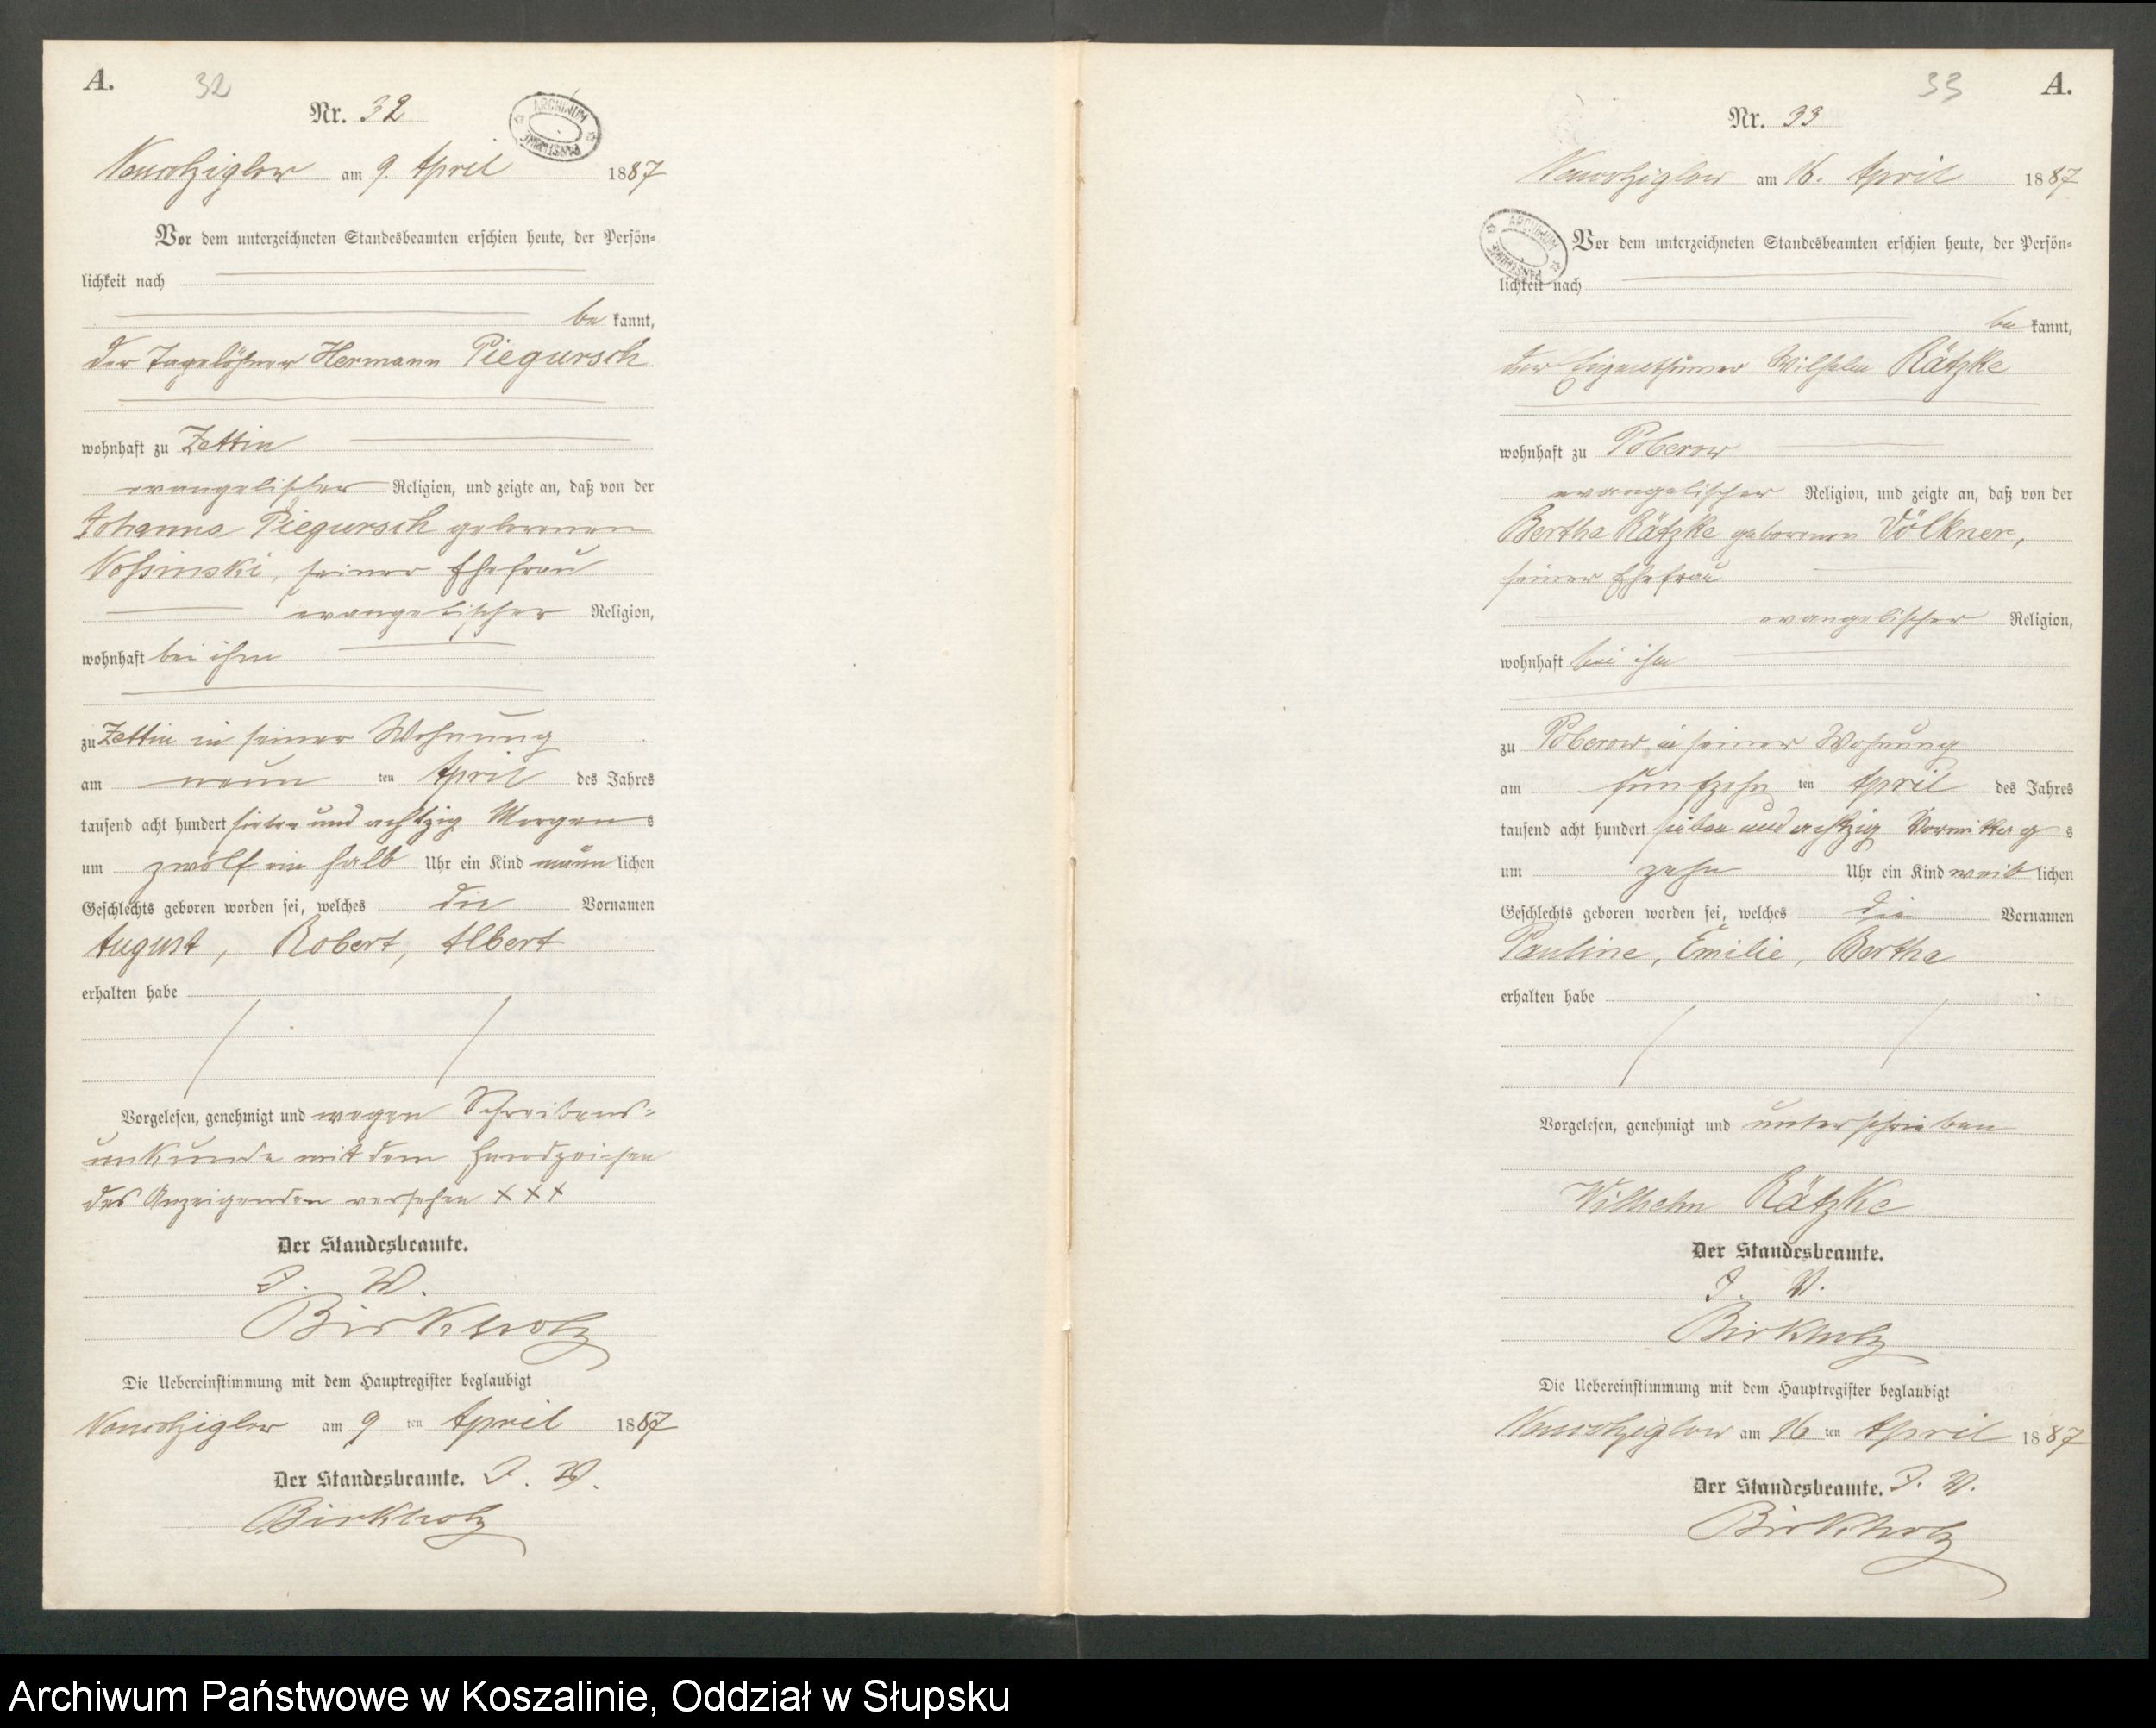 A.
32
Nr. 32
ARCHIWUM PAŃSTWOWE
Nowotziglow am 9. April 1887
Vor dem unterzeichneten Standesbeamten erschien heute, der Persön-
lichkeit nach
be kannt,
der Tagelöhner Hermann Piegursch
wohnhaft zu Zettin
evangelischer Religion, und zeigte an, daß von der
Johanna Piegursch geborenen
Noßinski, seiner Ehefrau
evangelischer Religion,
wohnhaft bei ihm
zu Zettin in seiner Wohnung
am neun ten April des Jahres
tausend acht hundert sieben und achtzig Morgens
um zwölf ein halb Uhr ein Kind männlichen
Geschlechts geboren worden sei, welches die Vornamen
August, Robert, Albert
erhalten habe
Vorgelesen, genehmigt und wegen Schreibens-
unkunde mit dem Handzeichen
des Anzeigenden versehen XXX
Der Standesbeamte.
J. V.
Birkholz
Die Uebereinstimmung mit dem Hauptregister beglaubigt
am 9 ten April 1887
Der Standesbeamte. J. V.
Birkholz
33
A.
Nr. 33
am 16. April 1887
ARCHIWUM PAŃSTWOWE
Vor dem unterzeichneten Standesbeamten erschien heute, der Persön-
lichkeit nach
be kannt,
der Eigenthümer Wilhelm Rätzke
wohnhaft zu Poberow
evangelischer Religion, und zeigte an, daß von der
Bertha Rätzke geborenen Völkner,
seiner Ehefrau
evangelischer Religion,
wohnhaft bei ihm
zu Poberow in seiner Wohnung
am fünfzehn ten April des Jahres
tausend acht hundert sieben und achtzig Vormittags
um zehn Uhr ein Kind weiblichen
Geschlechts geboren worden sei, welches die Vornamen
Pauline, Emilie, Bertha
erhalten habe
Vorgelesen, genehmigt und unterschrieben
Wilhelm Rätzke
Der Standesbeamte.
J. V.
Birkholz
Die Uebereinstimmung mit dem Hauptregister beglaubigt
am 16 ten April 1887
Der Standesbeamte. J. V.
Birkholz
Archiwum Państwowe w Koszalinie, Oddział w Słupsku